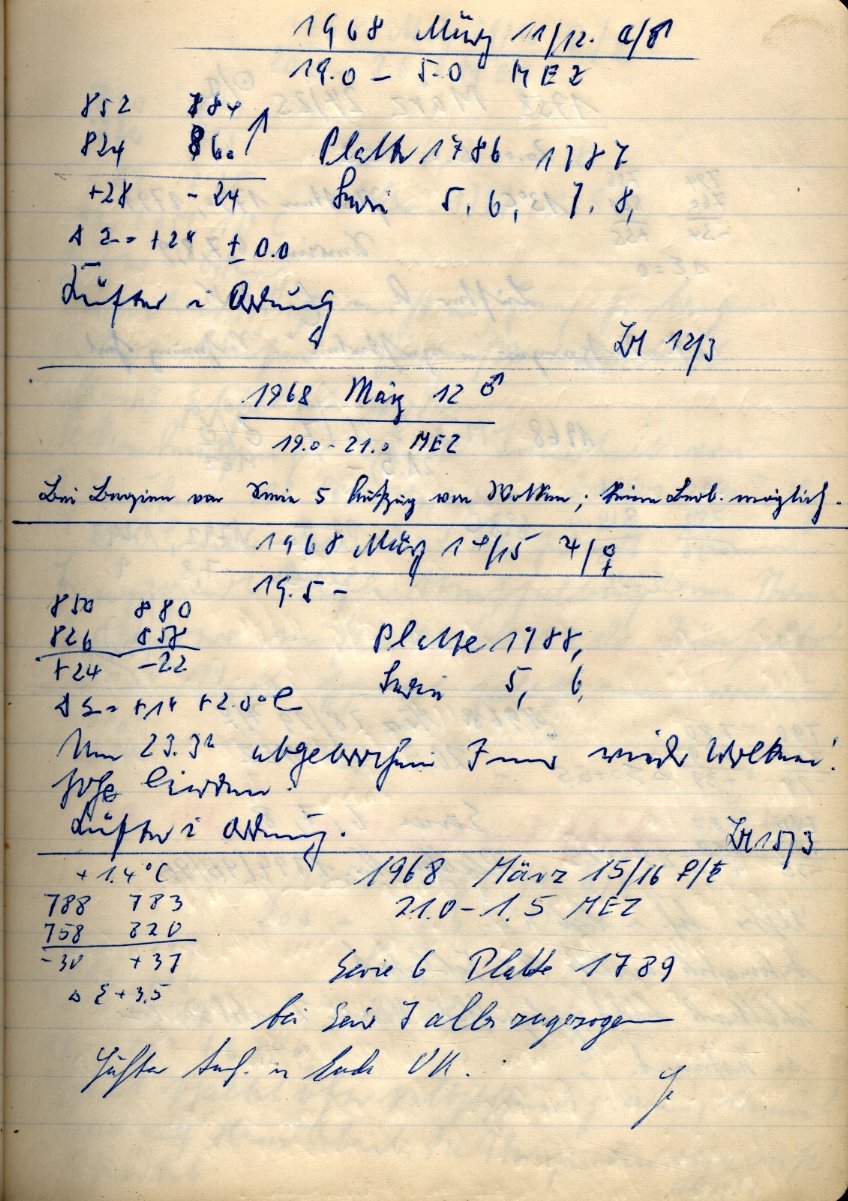 1968 März 11/12. ☾/♂
19.0 – 5.0 MEZ
852 884
824 860
+28 - 24
Platte 1786 1787
Serie 5, 6, 7. 8,
Δ Σ = +2" ± 0.0
Lüfter i Ordnung
12/3
1968 März 12 ♂
19.0 - 21.0 MEZ
Bei Beginn von Serie 5 Aufzug von Wolken; keine Beob. möglich.
1968 März 14/15 ♃/♀
19.5 –
850 880
826 858
+24 -22
Platte 1788,
Serie 5, 6,
+2.0°C
Um 23.3h abgebrochen wieder Wolken!
hohe Cirren.
Lüfter i Ordnung.
15/3
+ 1.4°C
1968 März 15/16 ♀/♄
21.0 – 1.5 MEZ
788 783
758 820
- 30 + 37
Δ Σ + 3.5
Serie 6 Platte 1789
bei Serie 7 alles zugezogen
Lüfter Anf. u Ende OK.